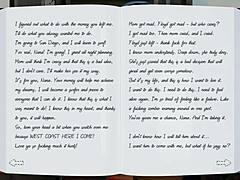 I figured out what to do with the money you left me.
I'll do what you always wanted me to do.
I'm going to San Diego, and I will learn to surf!
I'm sad, Nana. I'm going! I spent all night planning.
Mom will think I'm crazy and that this is a bad idea,
but I don't care. I'll make this joe it my way.
It's for you, Nana. Your money will help me achieve
my dreams. I will become a surfer and prove to
everyone that I can do it. I know that this is what I
was meant to do! I know this in my heart, and thanks
to you, it will happen.
So, bow your head a bit when you watch over me
because WEST COAST HERE I COME!
Love ya so fucking much it hurts!
Mom got mad. Floyd got mad - but who cares?
I got mad too. Then mom cried, and I cried.
Floyd just left - thank fuck for that.
I know mom understands. Deep down, she truly does.
She's just scared that this is a bad decision that will
pass and get even worse somehow.
But it's my life, and this is how I want to live it.
I want to do this. I need to do this. I need to feel
alive again. I'm so tired of feeling like a failure. Like
a fucking zombie wandering around in my past.
You've given me a chance, Nana. And I'm taking it.
I don't know how I will tell him about it...
I want him to come with me, but what if he says no?